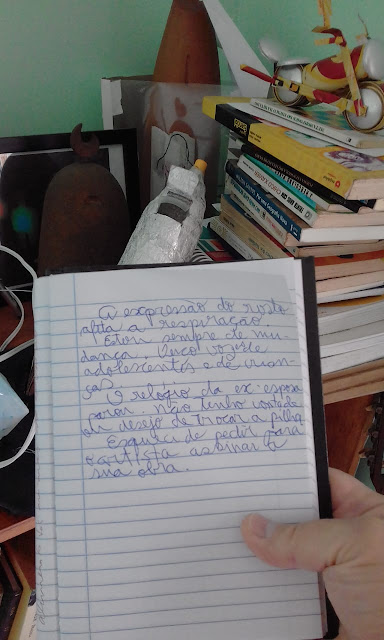 A expressão do rosto
afta a respiração.
Estou sempre de mu-
dança. Ouço vozes de
adolescentes e de crian-
ças.
O relógio da ex-esposa
parou. não tenho vontade
ou desejo de trocar a pilha
Esqueci de pedir para
o artista assinar a
sua obra.